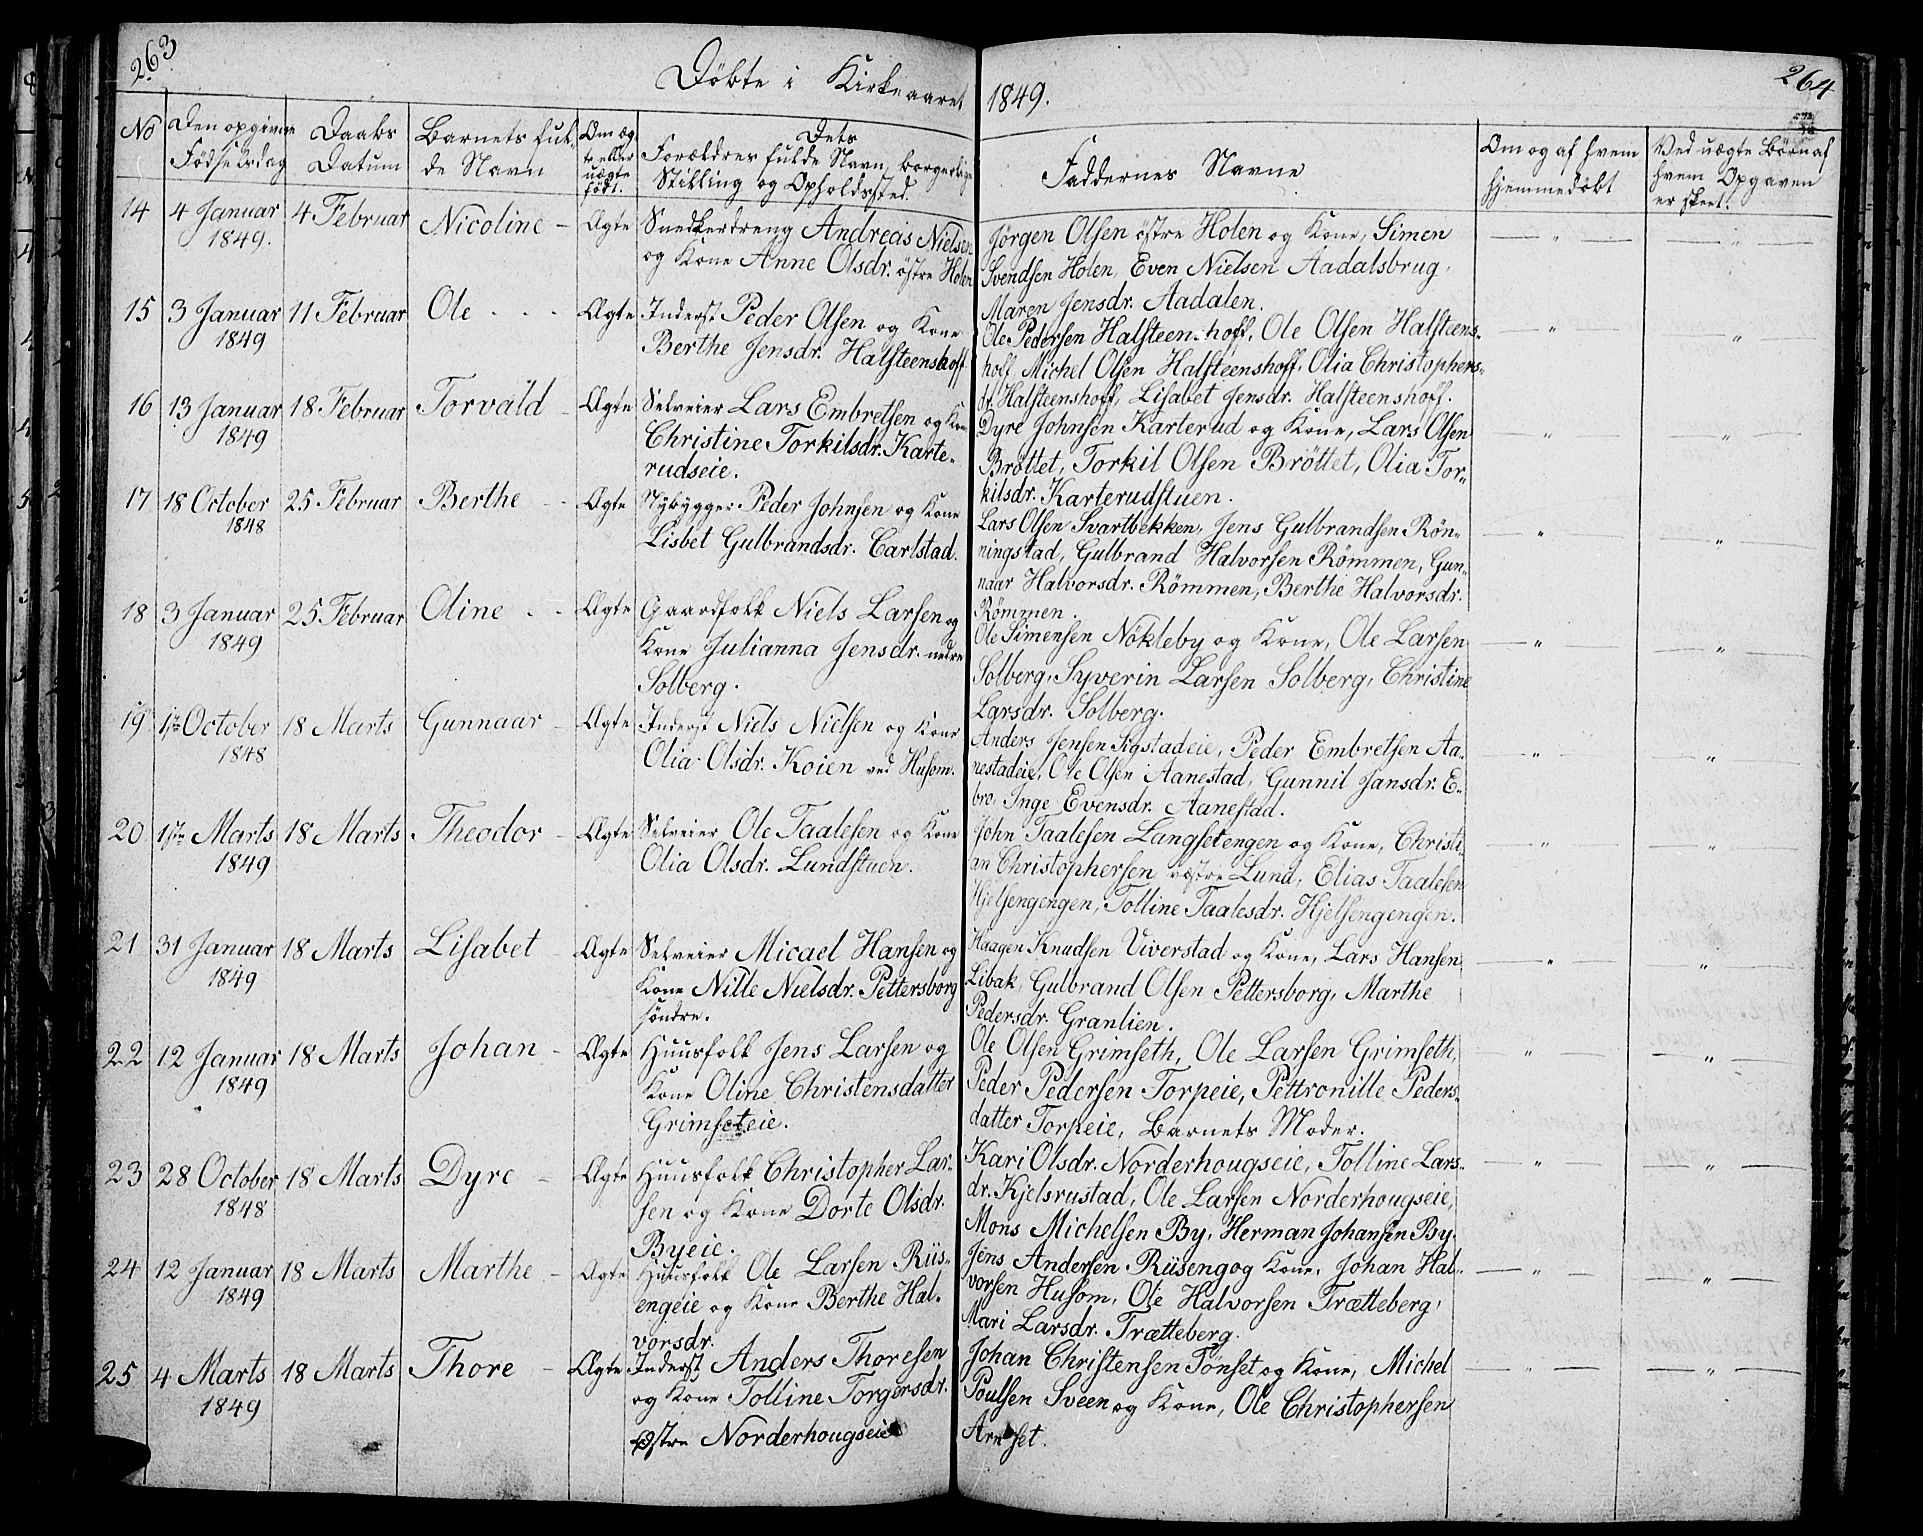 263
Döbte i Kirkeaaret 1849.
264
No
Den opgivne Födselsdag
Daabs Datum
Barnets fulde Navn
Om ægte eller uægte födt.
Dets Forældres fulde Navn, borgerlige Stilling og Opholdssted.
Faddernes Navne
Om og af hvem hjemmedöbt
Ved uægte Börn af hvem Opgaven er skeet.
14 4 Januar 1849. 4 Februar Nicoline - Ægte
Snedkerdreng Andreas Nielsen
og Kone Anne Olsdr. östre Holen
Jörgen Olsen östre Holen og Kone, Simen
Svendsen Holen, Even Nielsen Aadalsbrug,
Maren Jensdr. Aadalen.
15 3 Januar 1849 11 Februar Ole - - - Ægte
Inderst Peder Olsen og Kone
Berthe Jensdr. Halsteenshoff
Ole Pedersen Halsteenshoff, Ole Olsen Halsteens-
hoff Michel Olsen Halsteenshoff, Olia Christophers-
dr. Halsteenshoff, Lisabet Jensdr. Halsteenshoff.
16 13 Januar 1849 18 Februar Torvald - Ægte
Selveier Lars Embretsen og Kone
Christine Torkilsdr. Karte-
rudseie.
Dyre Johnsen Karterud og Kone, Lars Olsen
Bröttet, Torkil Olsen Bröttet, Olia Tor-
kilsdr. Karterudstuen.
17 18 October 1848 25 Februar Berthe - - Ægte
Nybygger Peder Johnsen og Kone
Lisbet Gulbrandsdr. Carlstad.
Lars Olsen Svartbekken, Jens Gulbrandsen Rön-
ningstad, Gulbrand Halvorsen Römmen, Gun-
naar Halvorsdr. Römmen, Berthe Halvorsdr.
Römmen.
18 3 Januar 1849 25 Februar Oline - - Ægte
Gaardfolk Niels Larsen og
Kone Julianna Jensdr. nedre
Solberg.
Ole Simensen Nökleby og Kone, Ole Larsen
Solberg, Syverin Larsen Solberg, Christine
Larsdr. Solberg.
19 1ste October 1848 18 Marts Gunnaar - Ægte
Inderst Niels Nielsen og Kone
Olia Olsdr. Koien ved Husom.
Anders Jensen Sigstadeie, Peder Embretsen Aa-
nestadeie, Ole Olsen Aanestad, Gunnil Jansdr. E-
bro, Inge Evensdr. Aanestad.
20 1ste Marts 1849 18 Marts Theodor - Ægte
Selveier Ole Taalesen og Kone
Olia Olsdr. Lundstuen.
John Taalesen Langsetengen og Kone, Christi-
an Christophersen östre Lund, Elias Taalesen
Hjelsengengen, Tolline Taalesdr. Hjelsengengen.
21 31 Januar 1849 18 Marts Lisabet - Ægte
Selveier Micael Hansen og
Kone Nille Nielsdr. Pettersborg
söndre.
Haagen Knudsen Viverstad og Kone, Lars Hansen
Libak, Gulbrand Olsen Pettersborg, Marthe
Pedersdr. Granlien.
22 12 Januar 1849 18 Marts Johan - Ægte
Huusfolk Jens Larsen og
Kone Oline Christensdatter
Grimseteie.
Ole Olsen Grimseth, Ole Larsen Grimseth,
Peder Pedersen Torpeie, Pettronille Peders-
datter Torpeie, Barnets Moder.
23 28 October 1848 18 Marts Dyre - Ægte
Huusfolk Christopher Lar-
sen og Kone Dorte Olsdr.
Byeie.
Kari Olsdr. Norderhougseie, Tolline Lars-
dr. Kjelsrustad, Ole Larsen Norderhougseie,
Mons Michelsen By, Herman Johansen By.
24 12 Januar 1849 18 Marts Marthe - Ægte
Huusfolk Ole Larsen Rüs-
engeie og Kone Berthe Hal-
vorsdr.
Jens Andersen Rüseng og Kone, Johan Hal-
vorsen Husom, Ole Halvorsen Trætteberg,
Mari Larsdr. Trætteberg.
25 4 Marts 1849 18 Marts Thore - Ægte
Inderst Anders Thoresen
og Kone Tolline Torgersdr.
östre Norderhougseie
Johan Christensen Tönset og Kone, Michel
Poulsen Sveen og Kone, Ole Christophersen
Arnset.